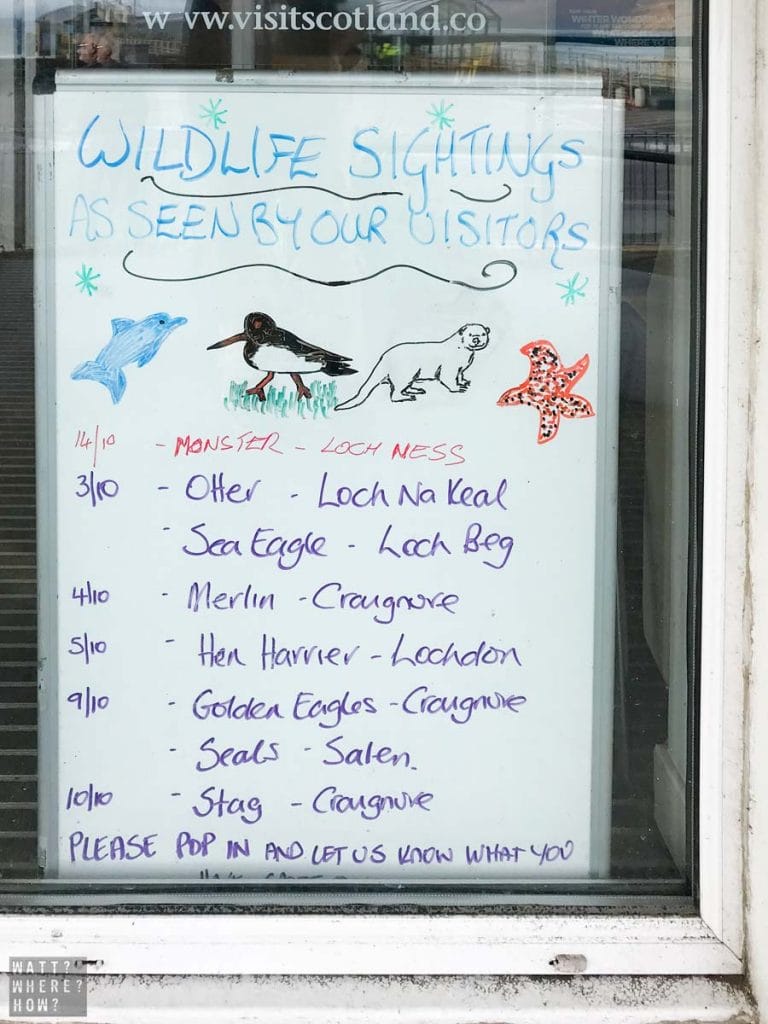 www.visitscotland.co
WINTER WONDERLAND
WHERE TO G
WILDLIFE SIGHTINGS
AS SEEN BY OUR VISITORS
14/10 - MONSTER - LOCH NESS
3/10 - Otter - Loch Na Keal
- Sea Eagle - Loch Beg
4/10 - Merlin - Craignure
5/10 - Hen Harrier - Lochdon
9/10 - Golden Eagles - Craignure
- Seals - Salen.
10/10 - Stag - Craignure
PLEASE POP IN AND LET US KNOW WHAT YOU
WATT?
WHERE?
HOW?